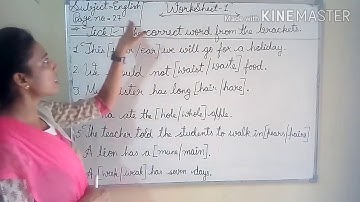 Subject-English
WorkSheet-1
Page no-27
Made with
KINEMASTER
Tick correct word from the brackets.
1 This [ /ear] we will go for a holiday.
2. We should not [waist/waste] food.
3. My sister has long [hair/hare].
ate the [hole/whole] apple.
5 The teacher told the students to walk in [pears/pairs]
A lion has a [mane/main].
A [week/weak] has seven days.